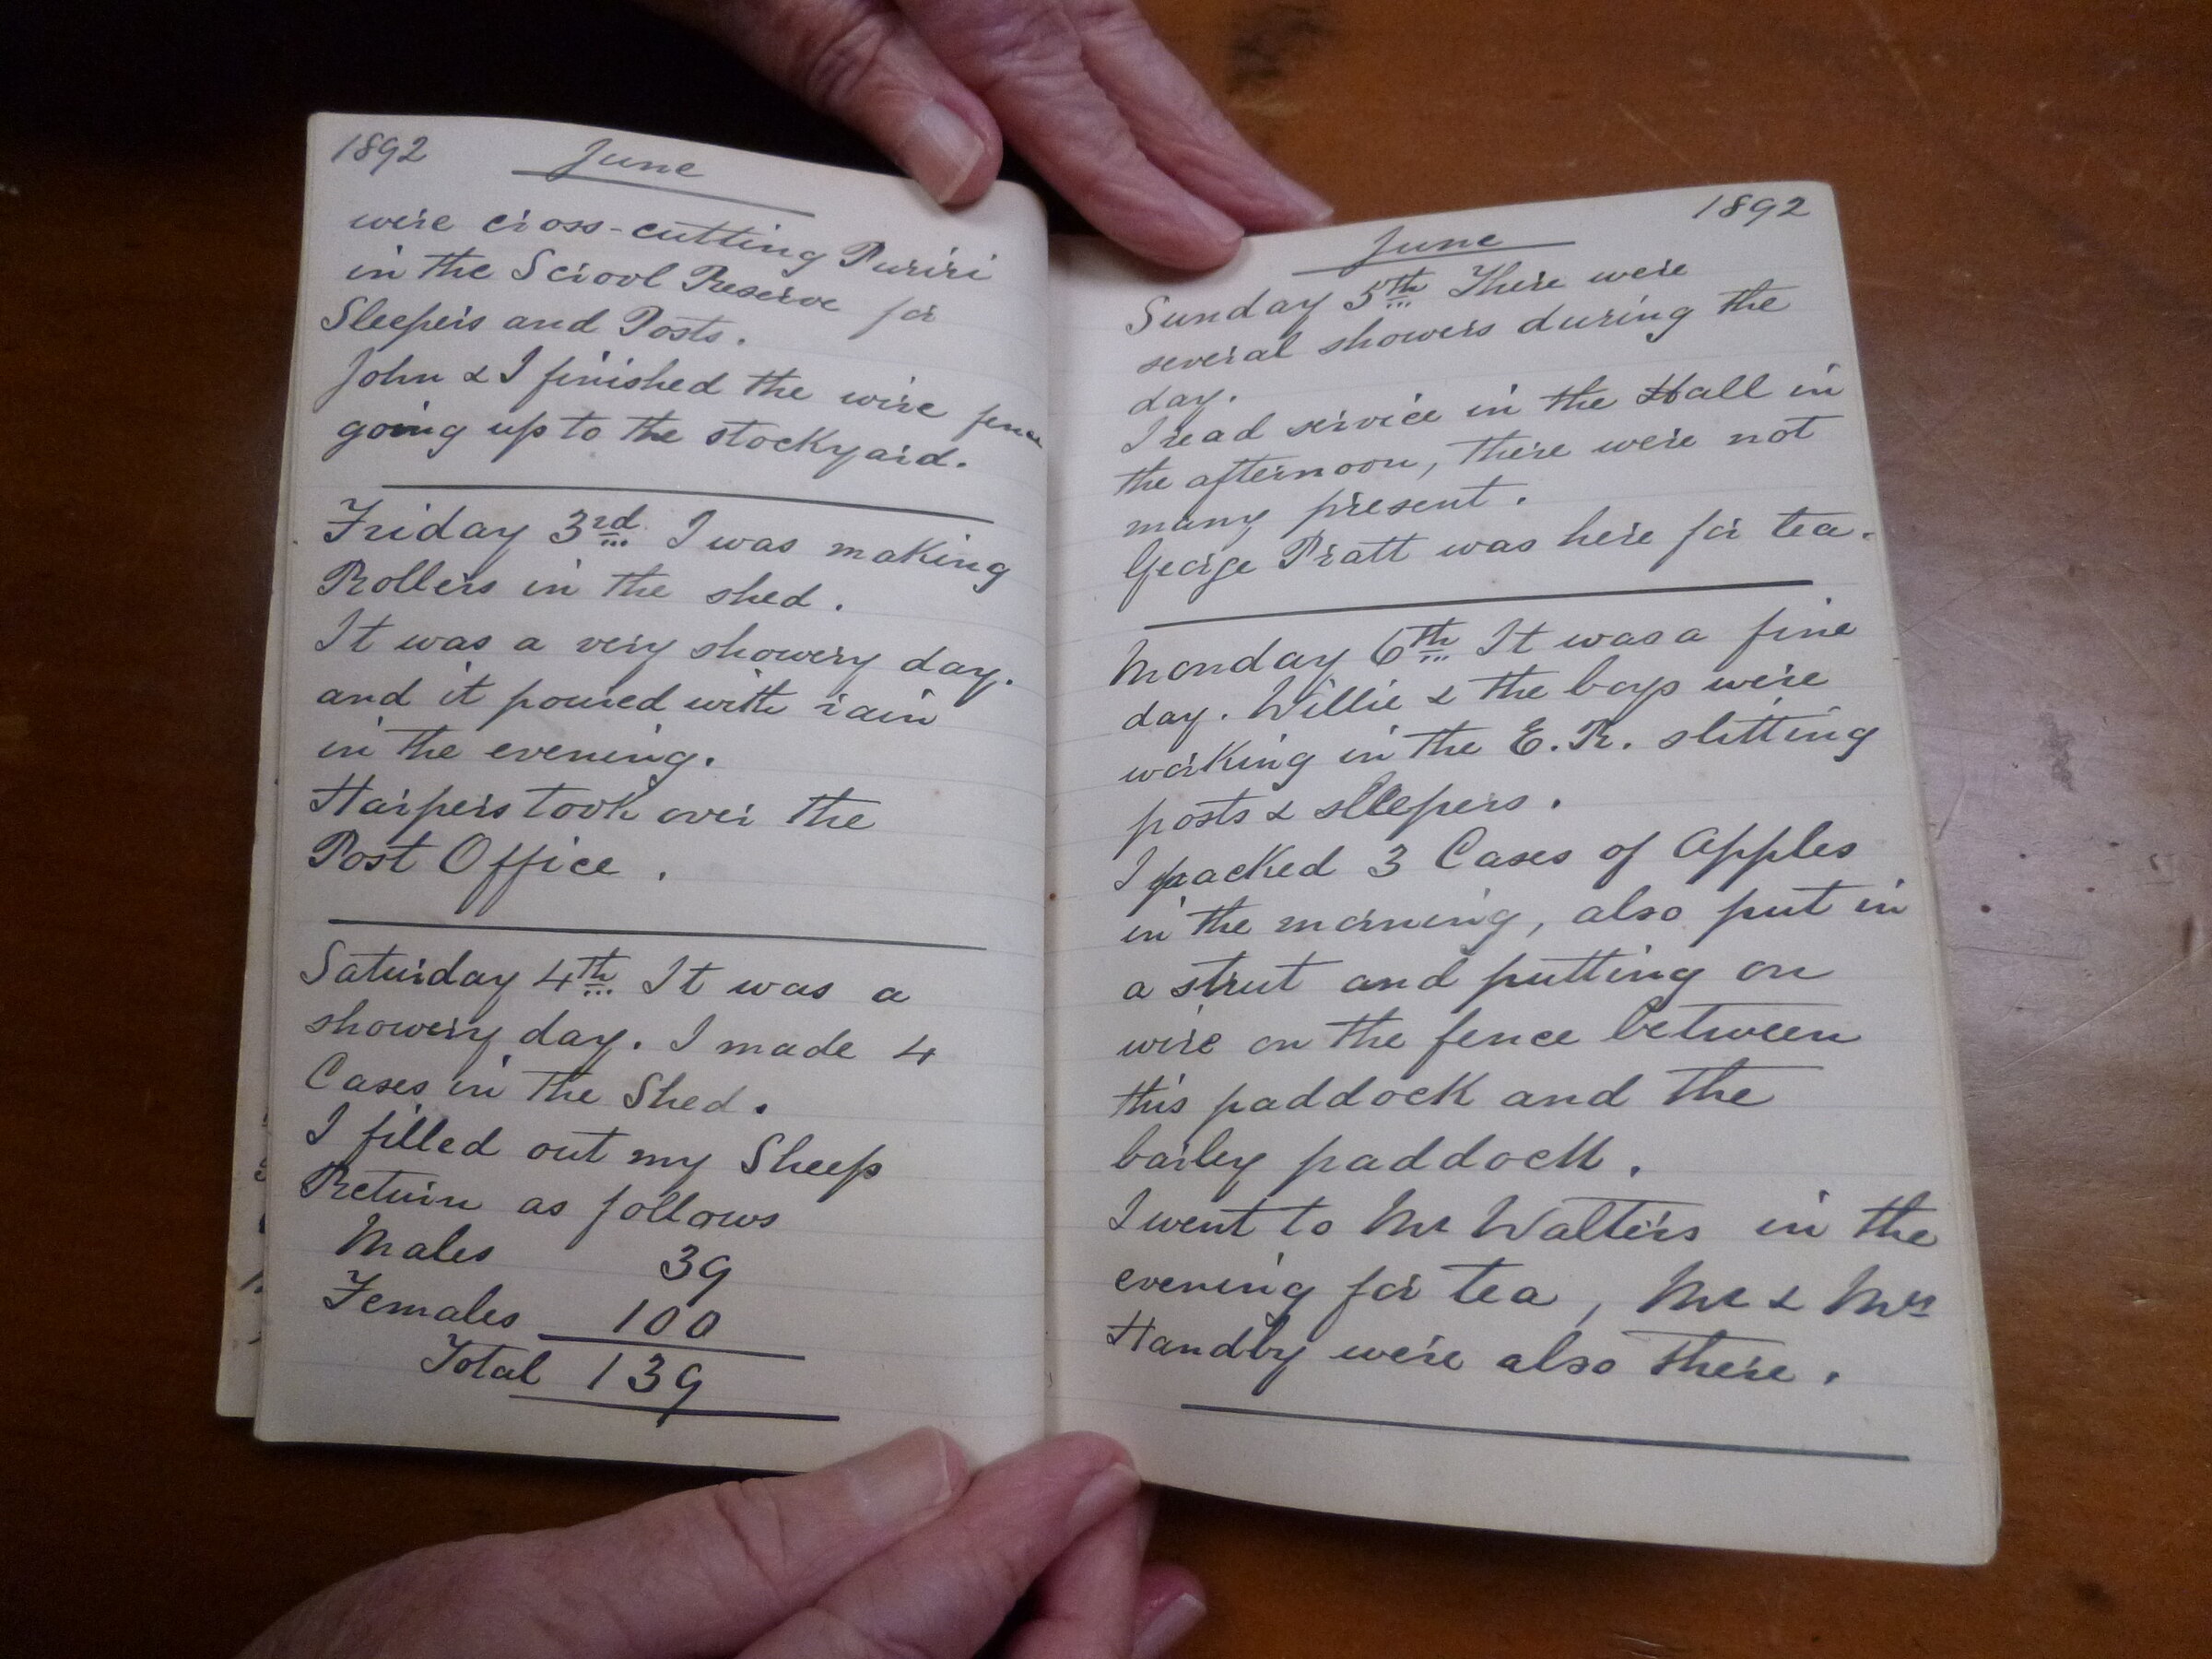 1892 June
were cross-cutting Puriri
in the Scrool Reserve for
Sleepers and Posts.
John & I finished the wire fence
going up to the stockyard.
Friday 3rd I was making
Rollers in the shed.
It was a very showery day.
and it poured with rain
in the evening.
Harpers took over the
Post Office.
Saturday 4th It was a
showery day. I made 4
Cases in the Shed.
I filled out my Sheep
Return as follows
Males 39
Females 100
Total 139
June 1892
Sunday 5th There were
several showers during the
day.
I read service in the Hall in
the afternoon, there were not
many present.
George Pratt was here for tea.
Monday 6th It was a fine
day. Willie & the boys were
working in the E.R. slitting
posts & sleepers.
I packed 3 Cases of Apples
in the morning, also put in
a strut and putting on
wire on the fence between
this paddock and the
barley paddock.
I went to Mr Walters in the
evening for tea, Mr & Mrs
Handby were also there.